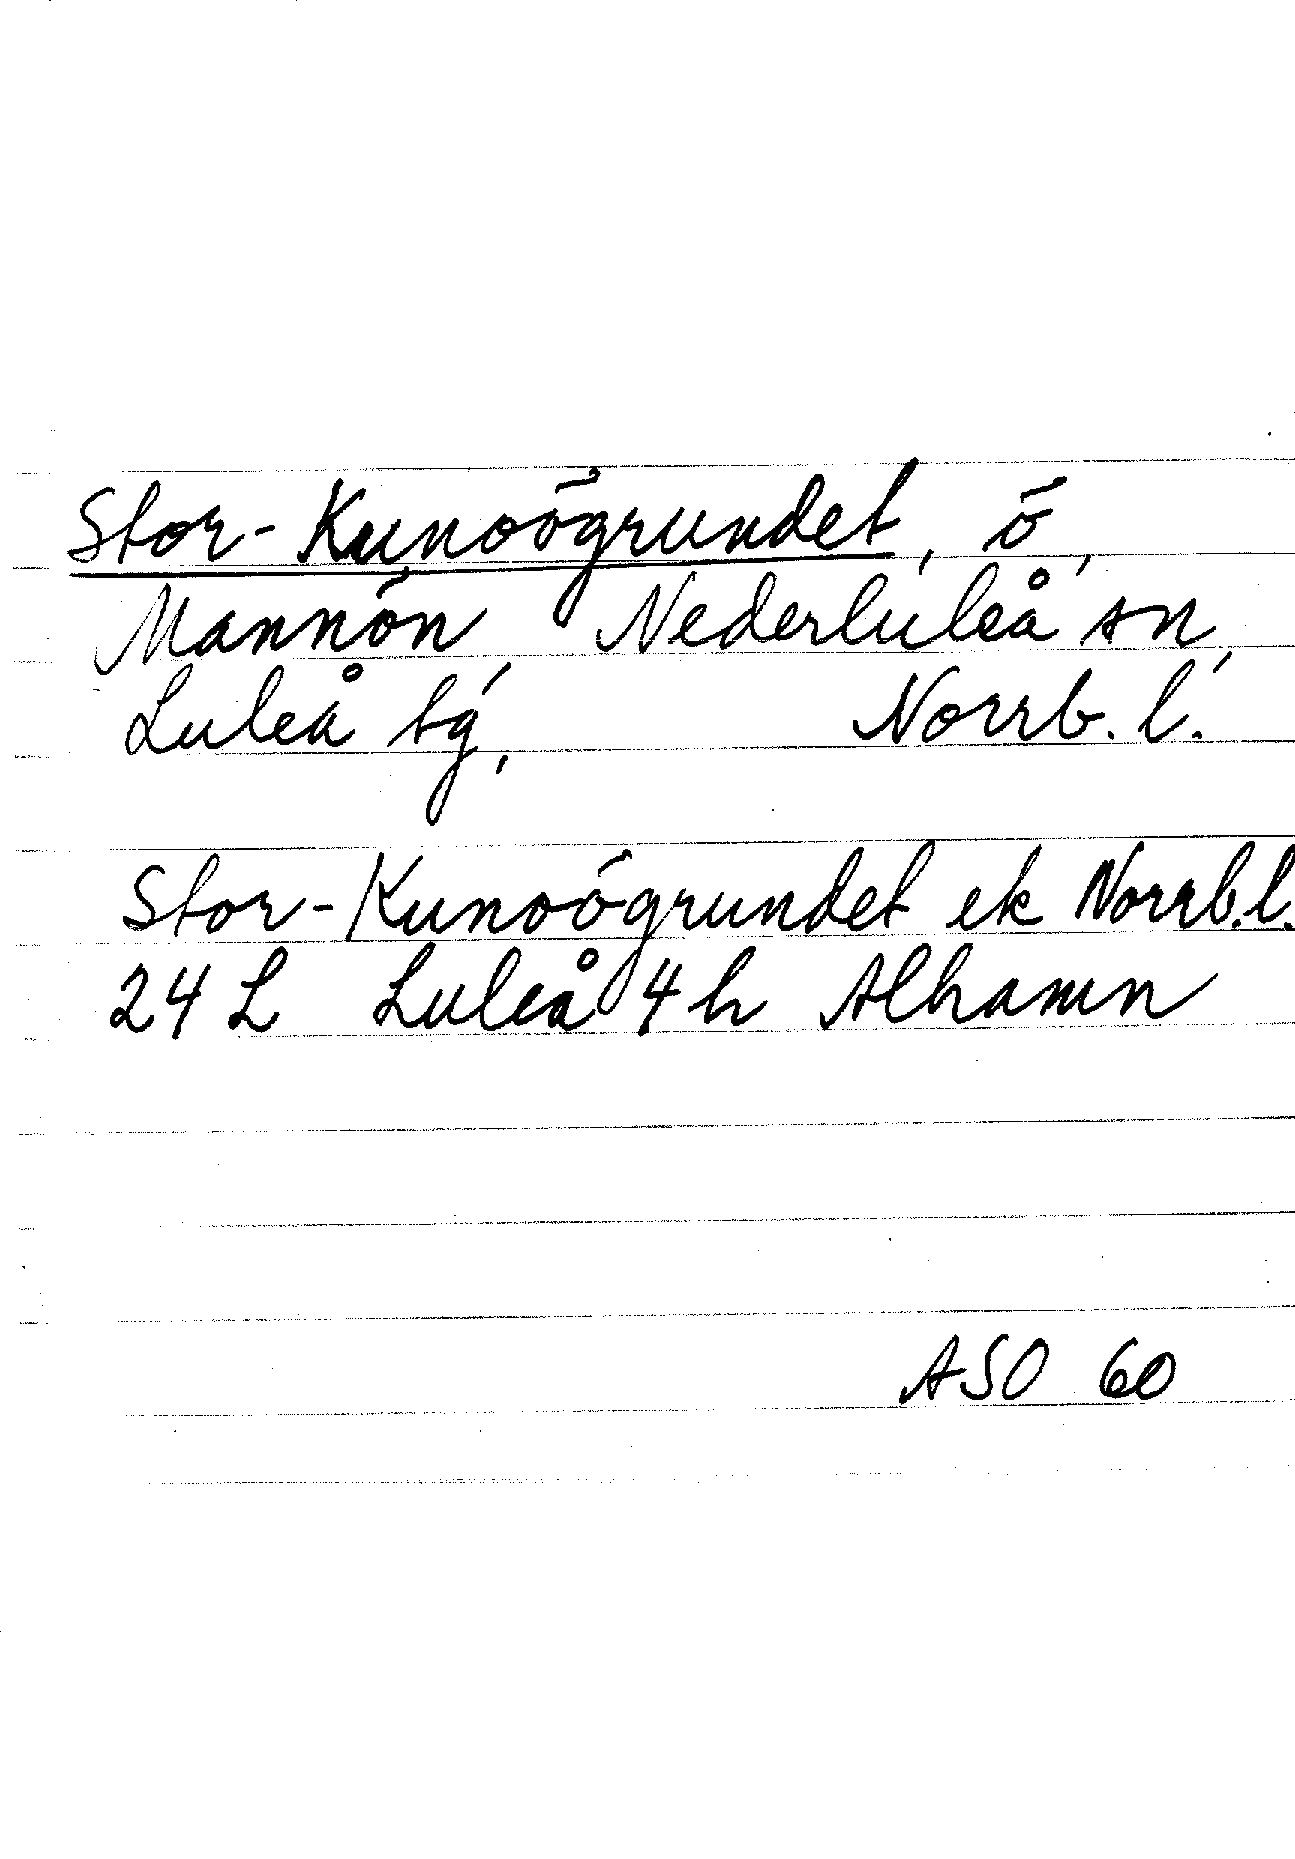 Stor-Kunoögrundet, ö,
Mannön Nederluleå sn,
Luleå tg, Norrb. l.
Stor-Kunoögrundet ek Norrb.l.
24 L Luleå 4 h Alhamn
ASO 60